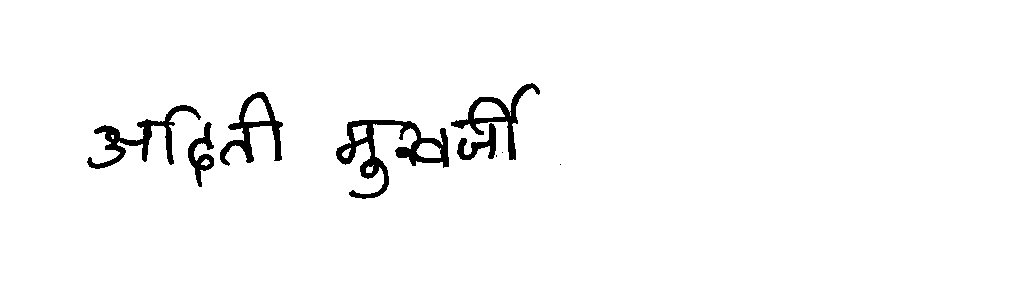 अदिती मुखर्जी